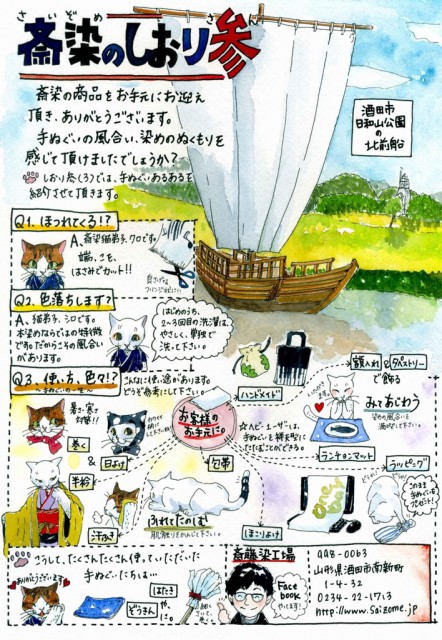 さいぞめ さん
斎染のしおり参
斎染の商品をお手元にお迎え
頂き、ありがとうございます。
手ぬぐいの風合い、染めのぬくもりを
感じて頂けましたでしょうか？
しおり参(くろ)では、手ぬぐいあるあるを
紹介させて頂きます。
酒田市
日和山公園
の
北前船
Q1.ほつれてくる!?
A.斎染猫弟子、クロです。
端っこを、
はさみでカット!!
Q2.色落ちします?
A.猫弟子、シロです。
本染めならではの特徴
です。だからこその風合い
があります。
はじめのうち、
2〜3回目の洗濯は、
やさしく、単独で
洗って下さい。
Q3.使い方、色々!?
こんなに使い道があります。
どうぞ参考にして下さい。
暑さ・寒さ
対策!!
巻く
&
日よけ
半衿
汗ふき
お客様の
お手元に
包帯
ふれてたのしむ
ハンドメイド
☆ヘビーユーザーは、
手ぬぐいを精天璧に
たたむことができる。
額入れ&タペストリー
で飾る
みてあじわう
ランチョンマット
ラッピング
このまま
手ぬぐいを
プレゼント!
ほこりよけ
こうして、たくさんたくさん使っていただいた
手ぬぐいたちは…
ありがとうございます
ぞうきん
はたき
や、
に。
斎藤染工場
Face
book
やってます!
998-0063
山形県酒田市南新町
1-4-32
0234-22-1713
http://www.saizome.jp